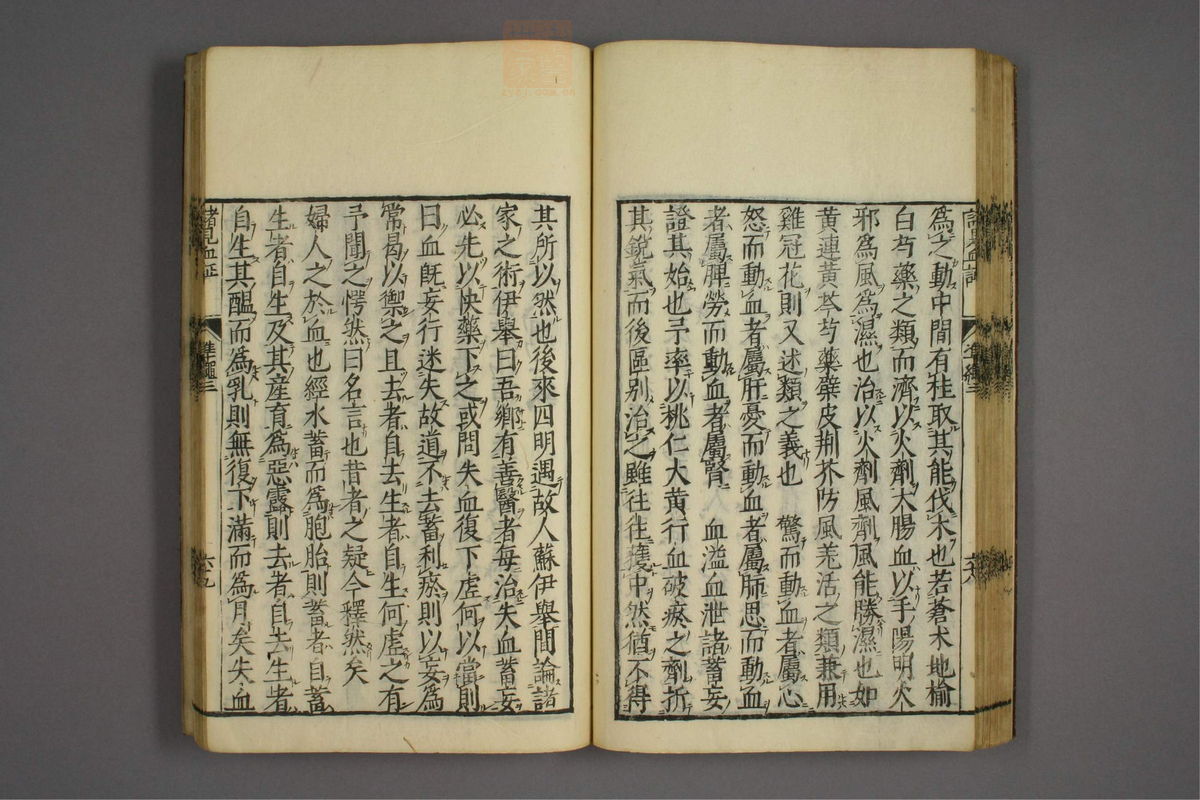 爲之動中間有桂取其能伐木也若蒼术地榆
白芍藥之類而濟以火劑大腸血以手陽明火
邪爲風爲濕也治以火劑風劑風能勝濕也如
黄連黄芩芍藥蘗皮荆芥防風羌活之類兼用
雞冠花則又述類之義也　驚而動血者屬心
怒而動血者屬肝憂而動血者屬肺思而動血
者屬脾勞而動血者屬腎　血溢血泄諸蓄妄
證其始也予率以桃仁大黄行血破瘀之劑折
其鋭氣而後區别治之雖往往獲中然猶不得
其所以然也後來四明遇故人蘇伊舉間論諸
家之術伊舉曰吾鄉有善醫者每治失血蓄妄
必先以快藥下之或問失血復下虚何以當則
曰血既妄行迷失故道不去蓄利瘀則以妄爲
常曷以禦之且去者自去生者自生何虚之有
予聞之愕然曰名言也昔者之疑今釋然矣
婦人之於血也經水蓄而爲胞胎則蓄者自蓄
生者自生及其産育爲惡露則去者自去生者
自生其醖而爲乳則無復下滿而爲月矣失血
諸見血証
準繩三
六九